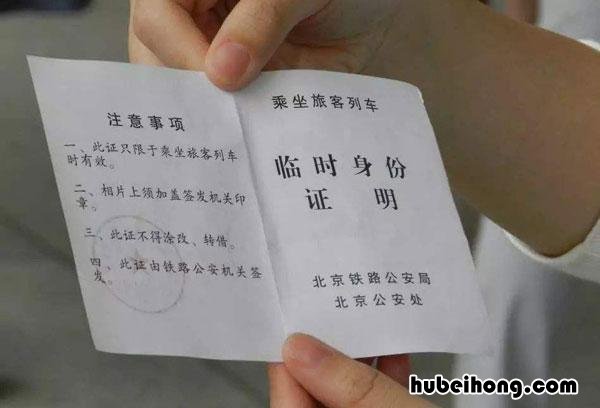 注意事项
一、此证只限于乘坐旅客列车
时有效。
二、相片上须加盖签发机关印
章。
三、此证不得涂改、转借。
四、此证由铁路公安机关签
发。
乘坐旅客列车
临时身份
证明
北京铁路公安局
北京公安处
hubeihong.com